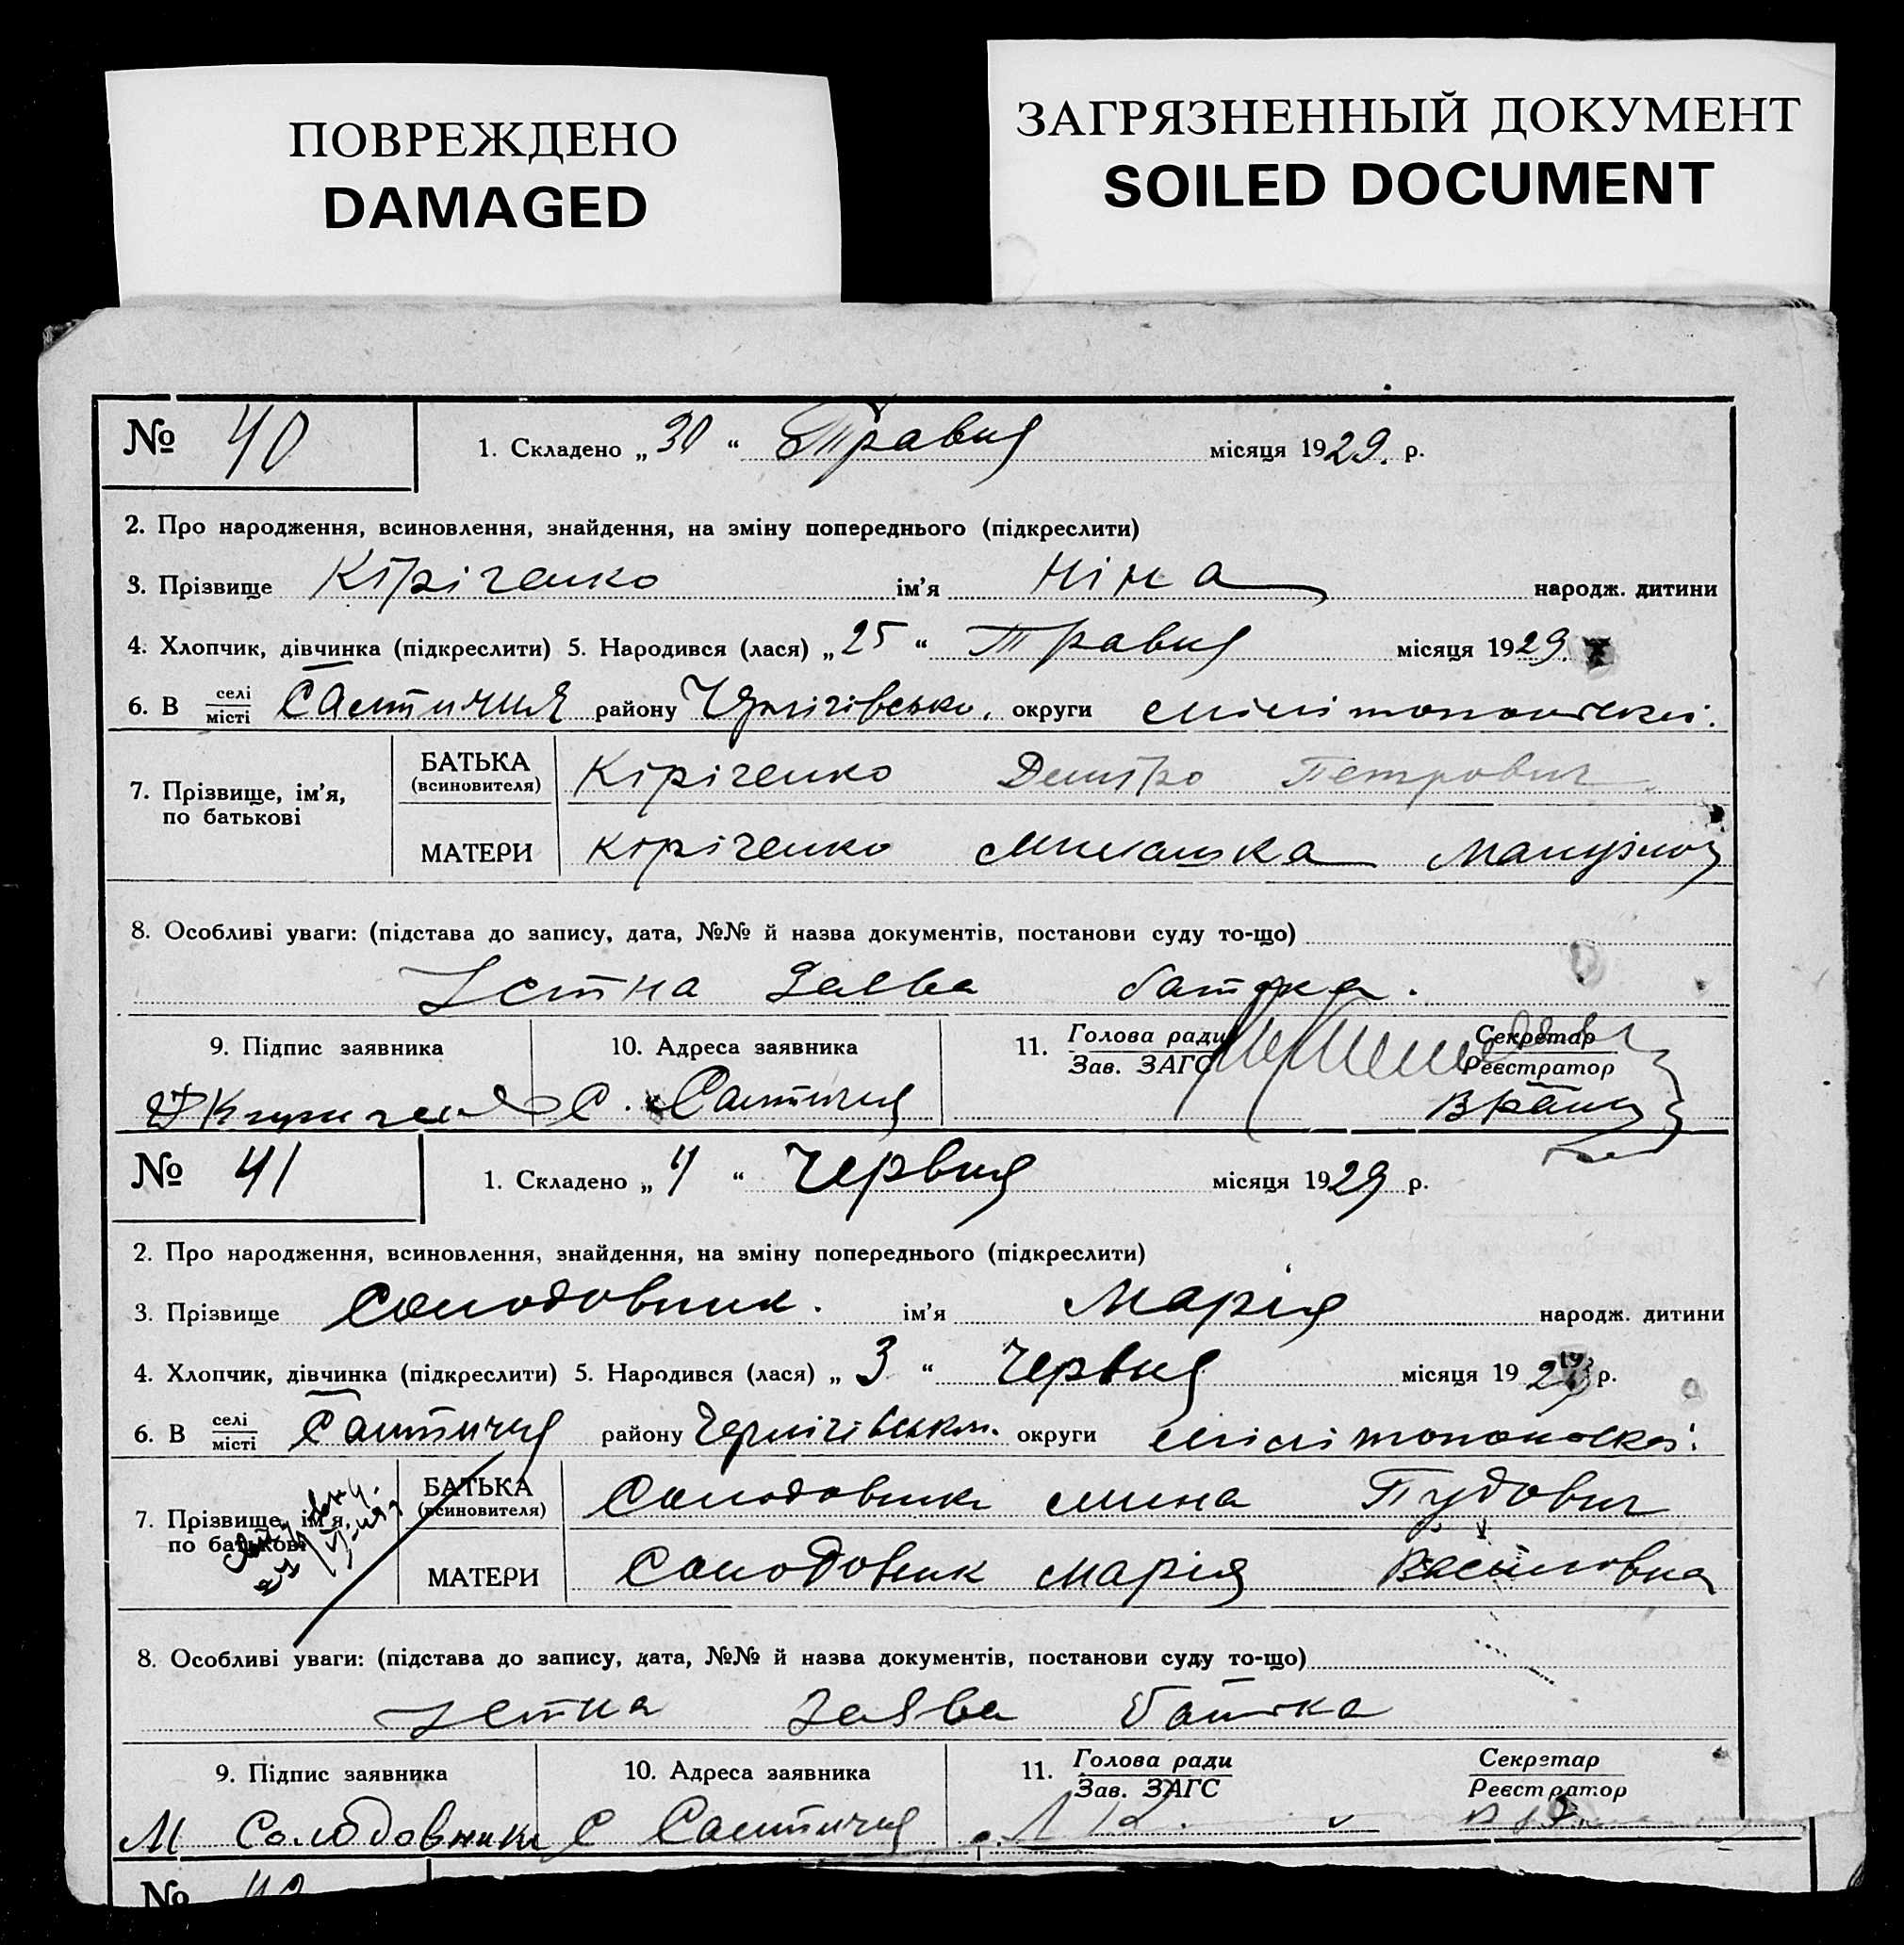 ПОВРЕЖДЕНО
DAMAGED
ЗАГРЯЗНЕННЫЙ ДОКУМЕНТ
SOILED DOCUMENT
№ 40 1. Складено „30“ Травня місяця 1929. р.
2. Про народження, всиновлення, знайдення, на зміну попереднього (підкреслити)
3. Прізвище Кіріченко ім’я Ніна народж. дитини
4. Хлопчик, дівчинка (підкреслити) 5. Народився (лася) „25“ Травня місяця 1929.
6. В селі/місті району округи
7. Прізвище, ім’я, по батькові
БАТЬКА (всиновителя) Кіріченко Дмитро Петрович
МАТЕРИ Кіріченко
8. Особливі уваги: (підстава до запису, дата, №№ й назва документів, постанови суду то-що)
Устна Заява батька.
9. Підпис заявника 10. Адреса заявника 11. Голова ради/Зав. ЗАГС Секретар/Реєстратор
№ 41 1. Складено „4“ Червня місяця 1929 р.
2. Про народження, всиновлення, знайдення, на зміну попереднього (підкреслити)
3. Прізвище Солодовник. ім’я Марія народж. дитини
4. Хлопчик, дівчинка (підкреслити) 5. Народився (лася) „3“ Червня місяця 1929 р.
6. В селі/місті району округи
7. Прізвище, ім’я, по батькові
БАТЬКА (всиновителя) Солодовник Мина Пудович
МАТЕРИ Солодовник Марія Василовна
8. Особливі уваги: (підстава до запису, дата, №№ й назва документів, постанови суду то-що)
Устна Заява батька
9. Підпис заявника 10. Адреса заявника 11. Голова ради/Зав. ЗАГС Секретар/Реєстратор
М Солодовник С
№ 42